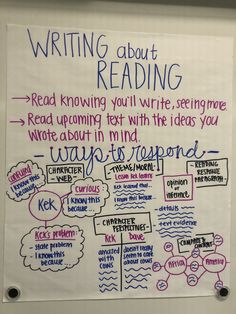 WRITING about
READING
→ Read knowing you'll write, seeing more
→ Read upcoming text with the ideas you
wrote about in mind.
ways to respond
CHARACTER
WEB
THEME/MORAL
READING
RESPONSE
PARAGRAPH
I know this
because
curious
I know this
because
Kek
Kek learned that...
I know this because
opinion
- details
- text evidence
Kek's problem:
- state problem
I know this
because
CHARACTER
PERSPECTIVES
Kek
Dave
amazed
with
cows
doesn't really
seem to care
about cows
Africa
America